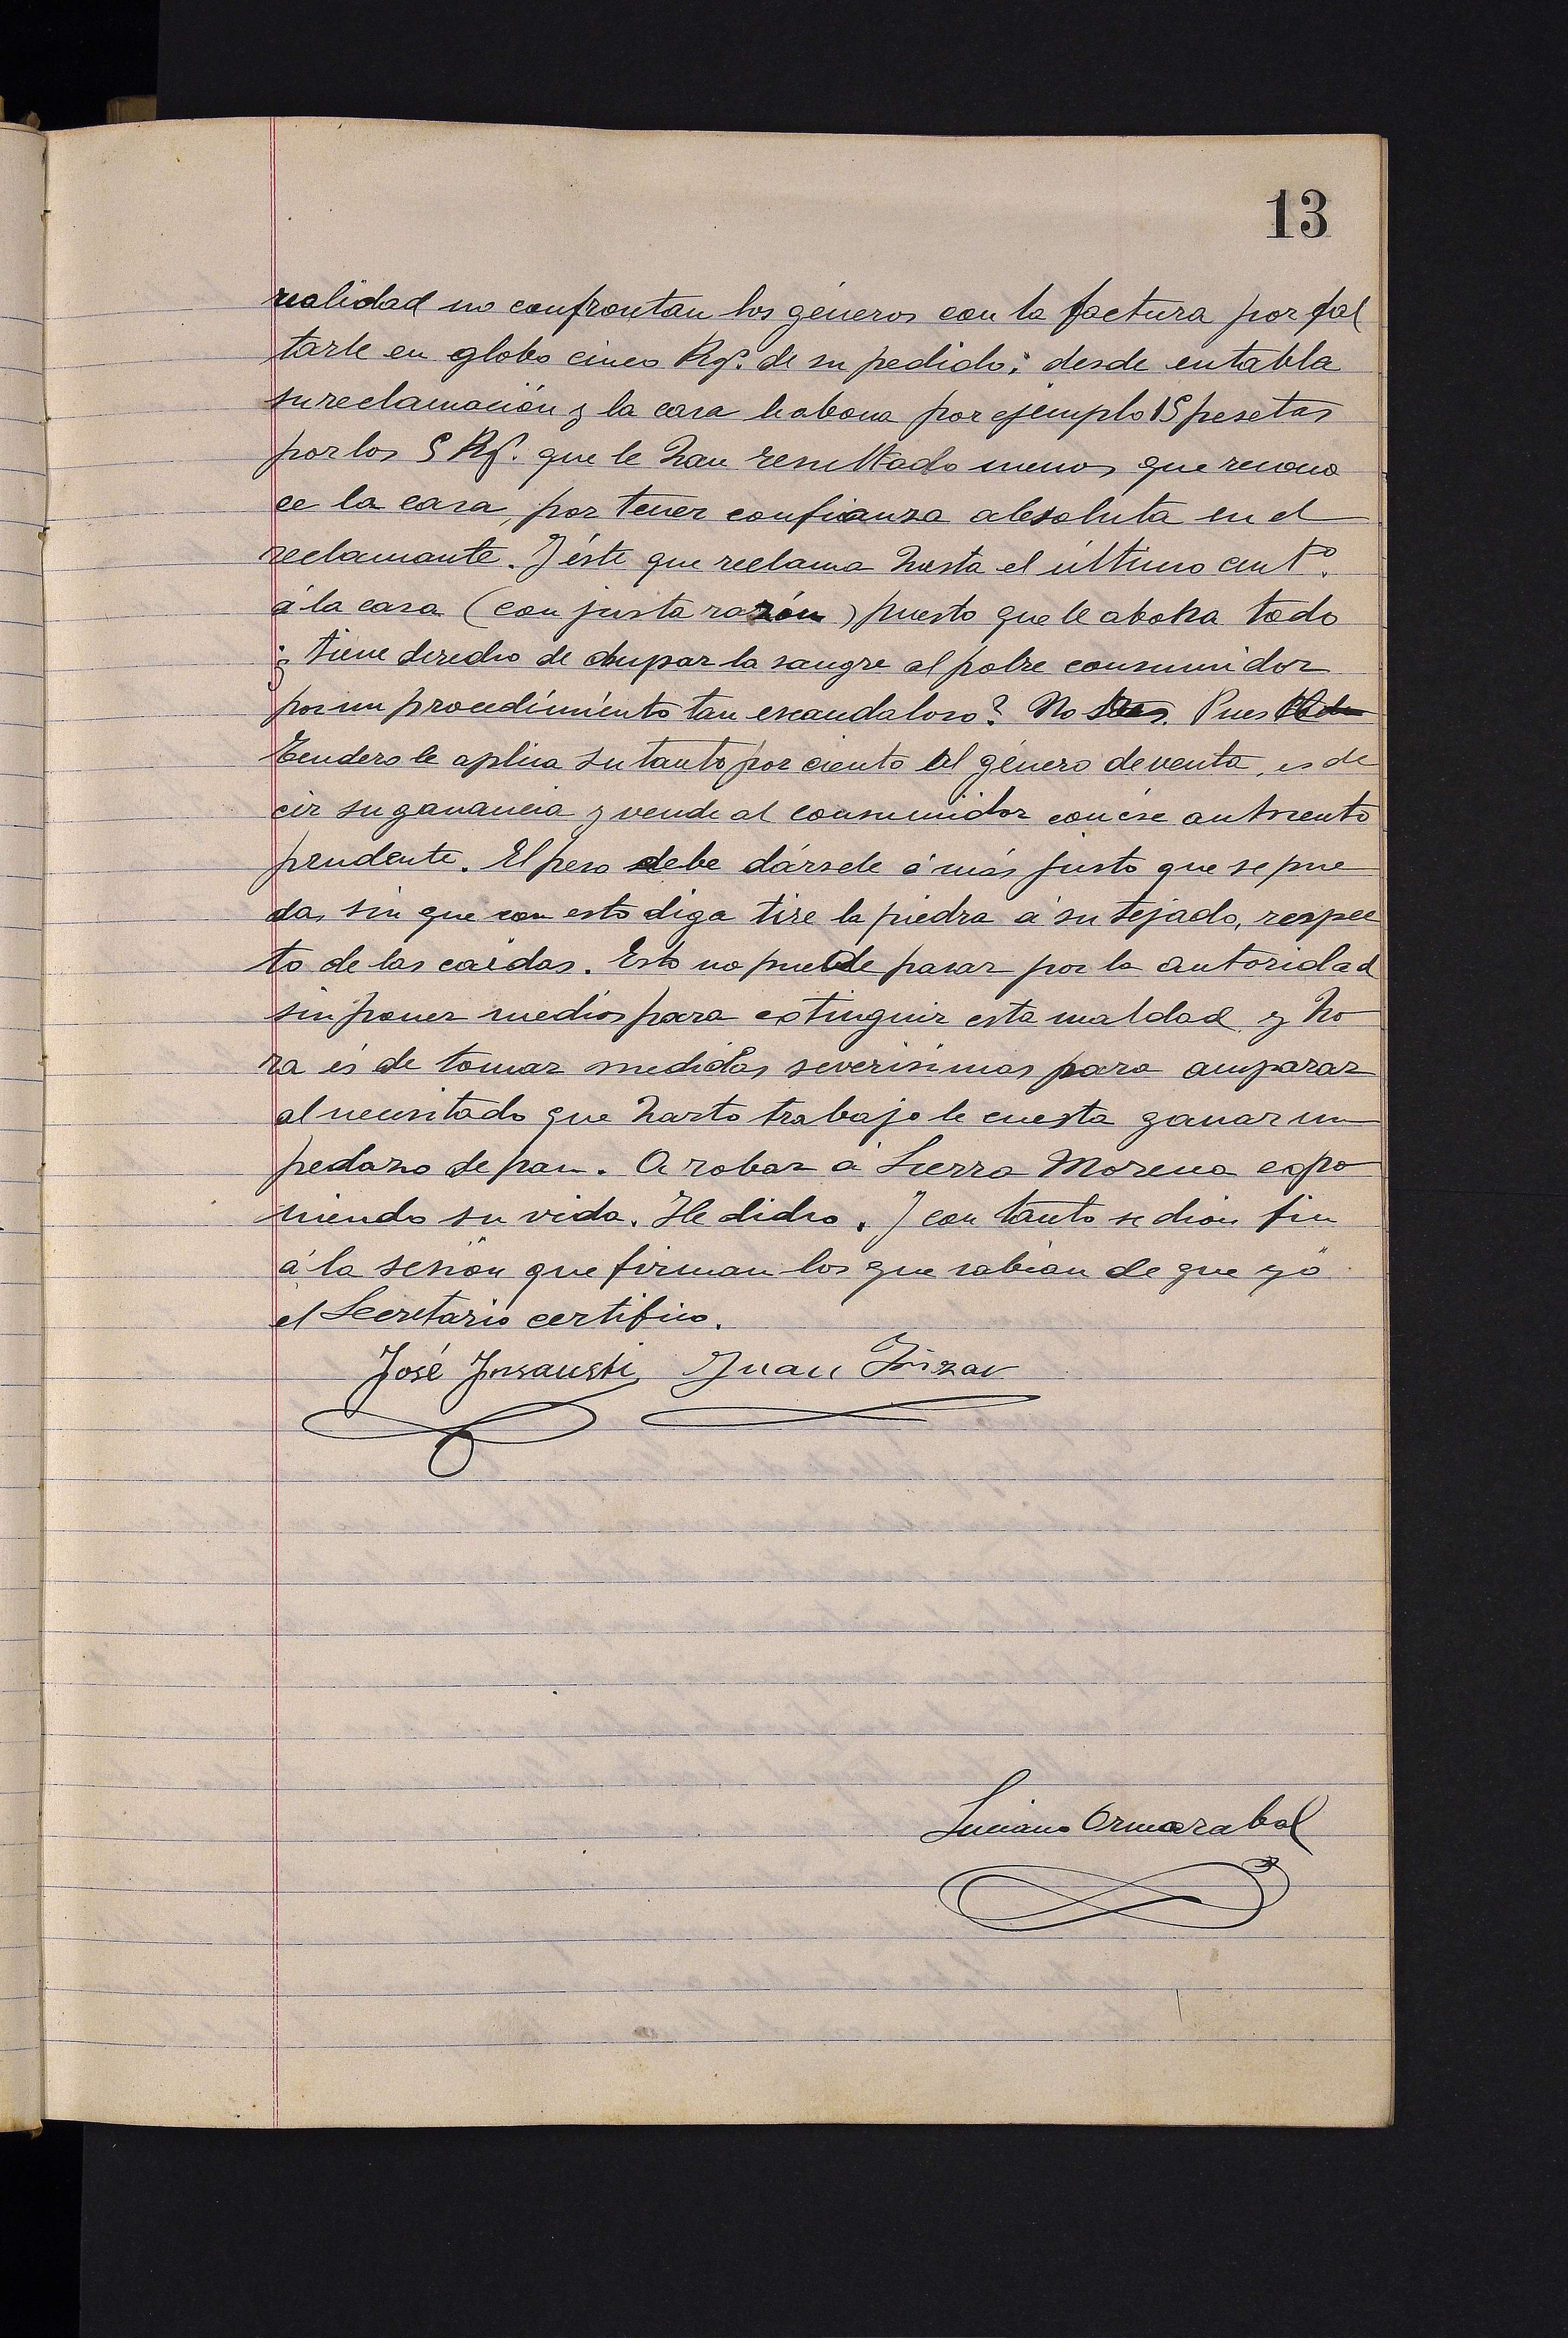 13
realidad no confrontan los géneros con la factura por fal
tarle en globo cinco Kgs. de su pedido; desde entabla
su reclamación y la casa le abona por ejemplo 15 pesetas
por los 5 Kgs. que le han resultado menos que recono
ce la casa, por tener confianza absoluta en el
reclamante. Y éste que reclama hasta el último centº.
á la casa (con justa razón) puesto que le abona todo
¿ tiene derecho de chupar la sangre al pobre consumidor
por un procedimiento tan escandaloso? No Pues
tendero le aplica su tanto por ciento al género de venta, es de
cir su ganancia y vende al consumidor con ése aumento
prudente. El peso debe dársele á más justo que se pue
da, sin que con esto diga tire la piedra á su tejado, respec
to de las caídas. Esto no puede pasar por la autoridad
sin poner medios para extinguir esta maldad y ho
ra és de tomar medidas severisimas para amparar
al necesitado que harto trabajo le cuesta ganar un
pedazo de pan. A robar á Sierra Morena expo
niendo su vida. He dicho. Y con tanto se dió fin
á la sesión que firman los que sabían de que yó
el Secretario certifico.
José Insausti Juan Irizar
Luciano Ormazabal